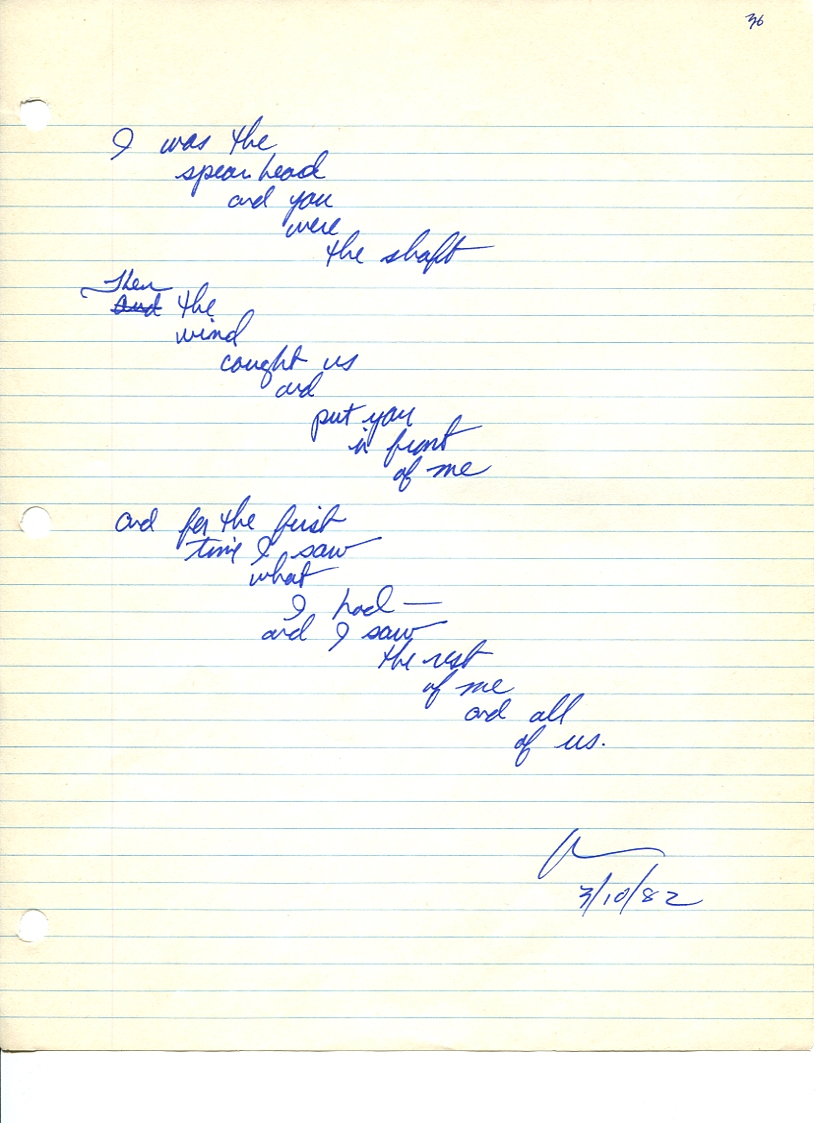 36
I was the
spear head
and you
were
the shaft
Then
And the
wind
caught us
and
put you
in front
of me
and for the first
time I saw
what
I had —
and I saw
the rest
of me
and all
of us.
3/10/82